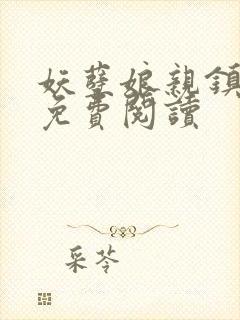 妖孽娘親鎮
免費閱讀
采苓